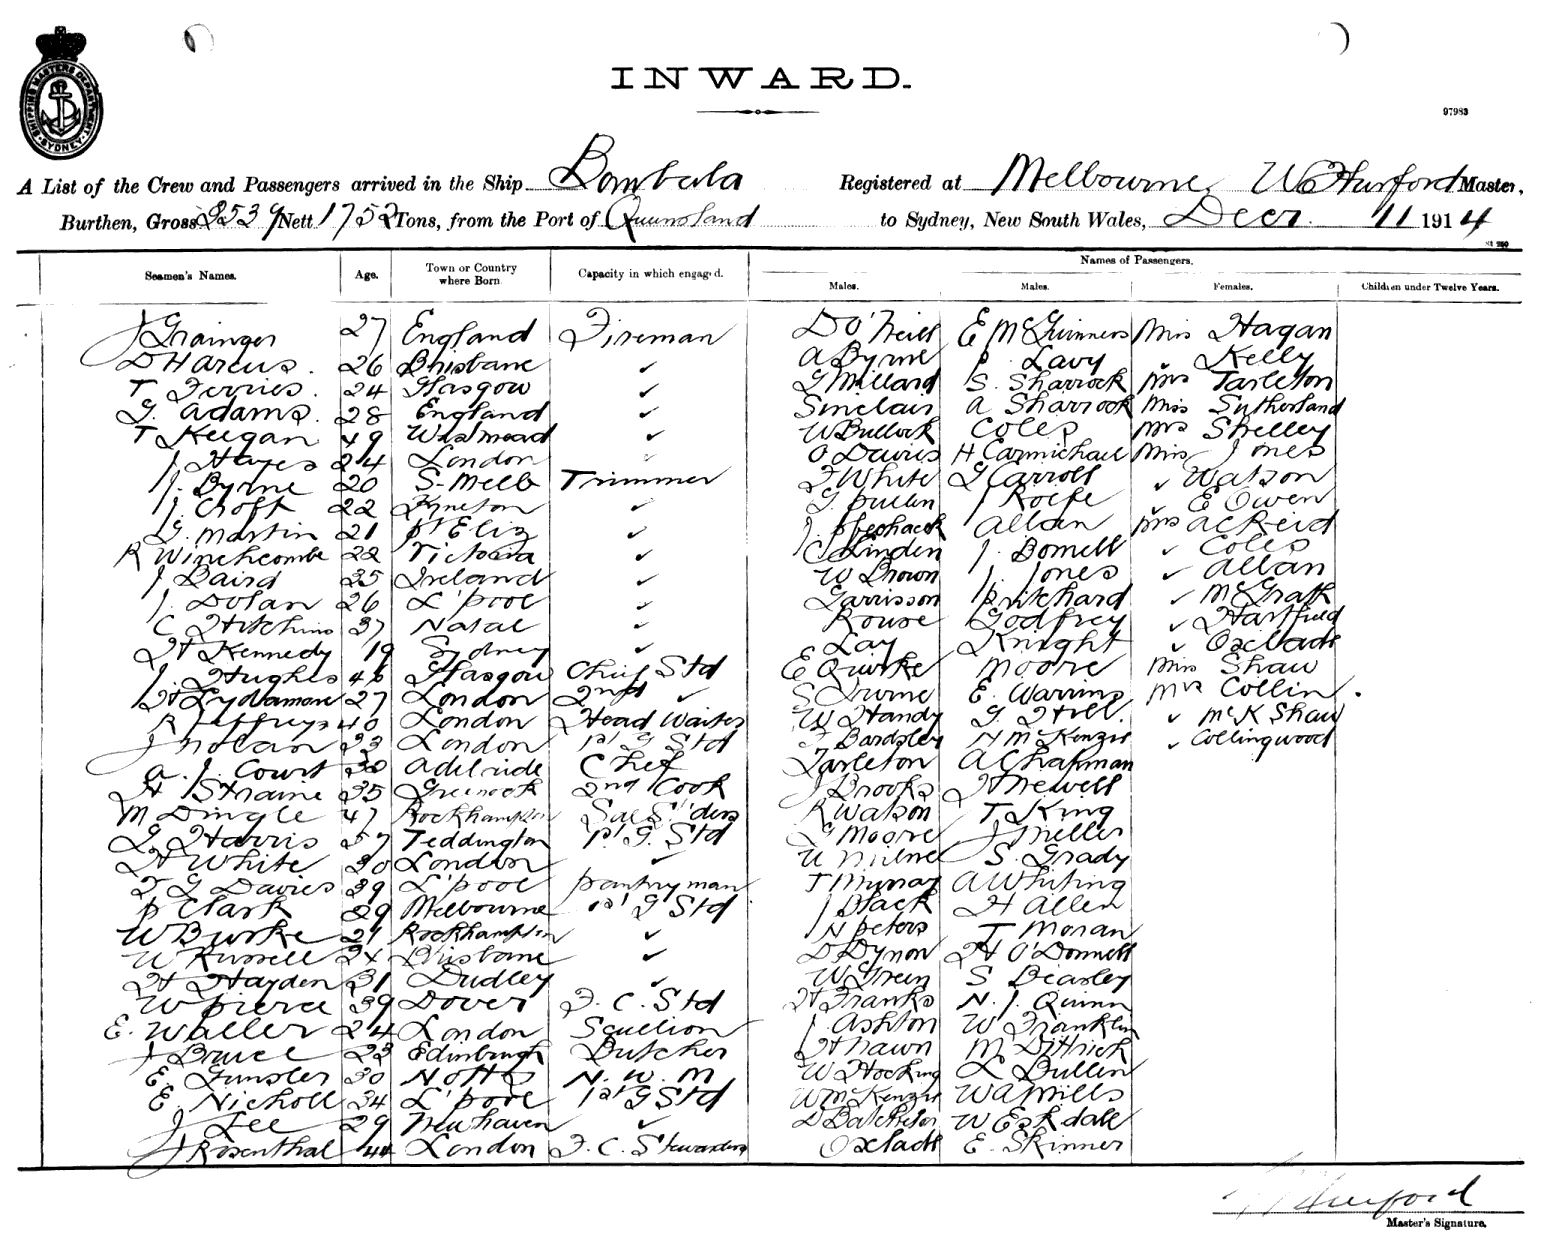 SHIPPING MASTERS DEPARTMENT SYDNEY
INWARD.
97983
A List of the Crew and Passengers arrived in the Ship Bombala Registered at Melbourne W C Hurford Master,
Burthen, Gross Nett 1752 Tons, from the Port of Queensland to Sydney, New South Wales, Decr. 11 1914
Seamen's Names. Age. Town or Country where Born Capacity in which engaged. Names of Passengers.
Males. Males. Females. Children under Twelve Years.
J Grainger 27 England Fireman D O'Neill E McGuinness Miss Hagan
D Harcus. 26 Brisbane ✓ A Byrne P. Lavy ✓ Kelly
T Ferries. 24 Glasgow ✓ G Millard S. Sharrock Mrs Tarleton
G. Adams. 28 England ✓ Sinclair A Sharrock Miss Sutherland
T Keegan 49 ✓ W Bullock Coles Mrs Shelley
J. Hayes 24 London ✓ O Davies H Carmichael Miss Jones
J. Byrne 20 S. Melb Trimmer F White G Carroll ✓ Watson
J. Croft 22 Kyneton ✓ G. Pullen J Roefe ✓ E Owen
G. Martin 21 Pt Eliz ✓ J. Allan Mrs Acreid
R Winchcombe 22 Victoria ✓ C Linden J. Bomell ✓ Coles
J Baird 25 Ireland ✓ W Brown J. Jones ✓ Allan
J. Dolan 26 L'pool ✓ Garrisson Pritchard ✓ McGrath
C Hitchins 37 Natal ✓ Rouse Godfrey ✓ Hartfield
H Kennedy 19 Sydney ✓ Lay Knight ✓ Oxlade
J. Hughes 46 Glasgow Chief Std E Quirke Moore Miss Shaw
H Lydamore 27 London 2nd ✓ S Irvine E. Warrins Mrs Collin.
R Jeffreys 40 London Head Waiter W Handy G. Hill. ✓ McK Shaw
J Nolan 23 London 1st G Std F Bardsley N McKenzie ✓ Collingwood
A. J. Court 30 Adelaide Chef Tarleton A Chapman
H Straine 35 Greenock 2nd Cook J Brooks H Mewell
M Dingle 47 Rockhampton R Watson T King
G Harris 37 Teddington 1st G. Std G Moore J Miller
H White 30 London ✓ W Milne S. Grady
T G Davies 39 L'pool Pantryman T Murray A Whiting
P Clark 29 Melbourne 1st G Std J Black H Allen
W Burke 21 Rockhampton ✓ N Peters T Moran
W Russell 24 Brisbane ✓ D Dynon H O'Donnell
H Hayden 31 Dudley ✓ W Green S Bearley
W Pierce 39 Dover F. C. Std H Franks N. J. Quinn
E. Waller 24 London Scullion J Ashton W Franklin
J Bruce 23 Edinburgh Butcher H Nawn M Dittrick
E Gunsler 30 Notts N. W. M W Hocking L Bullen
E Nicholl 34 L'pool 1st G Std W McKenzie W A Mills
J Lee 29 Newhaven ✓ D Batchelor W Eskdale
J Rosenthal 44 London F. C. Stewardess Oxlade E. Skinner
Hurford
Master's Signature.